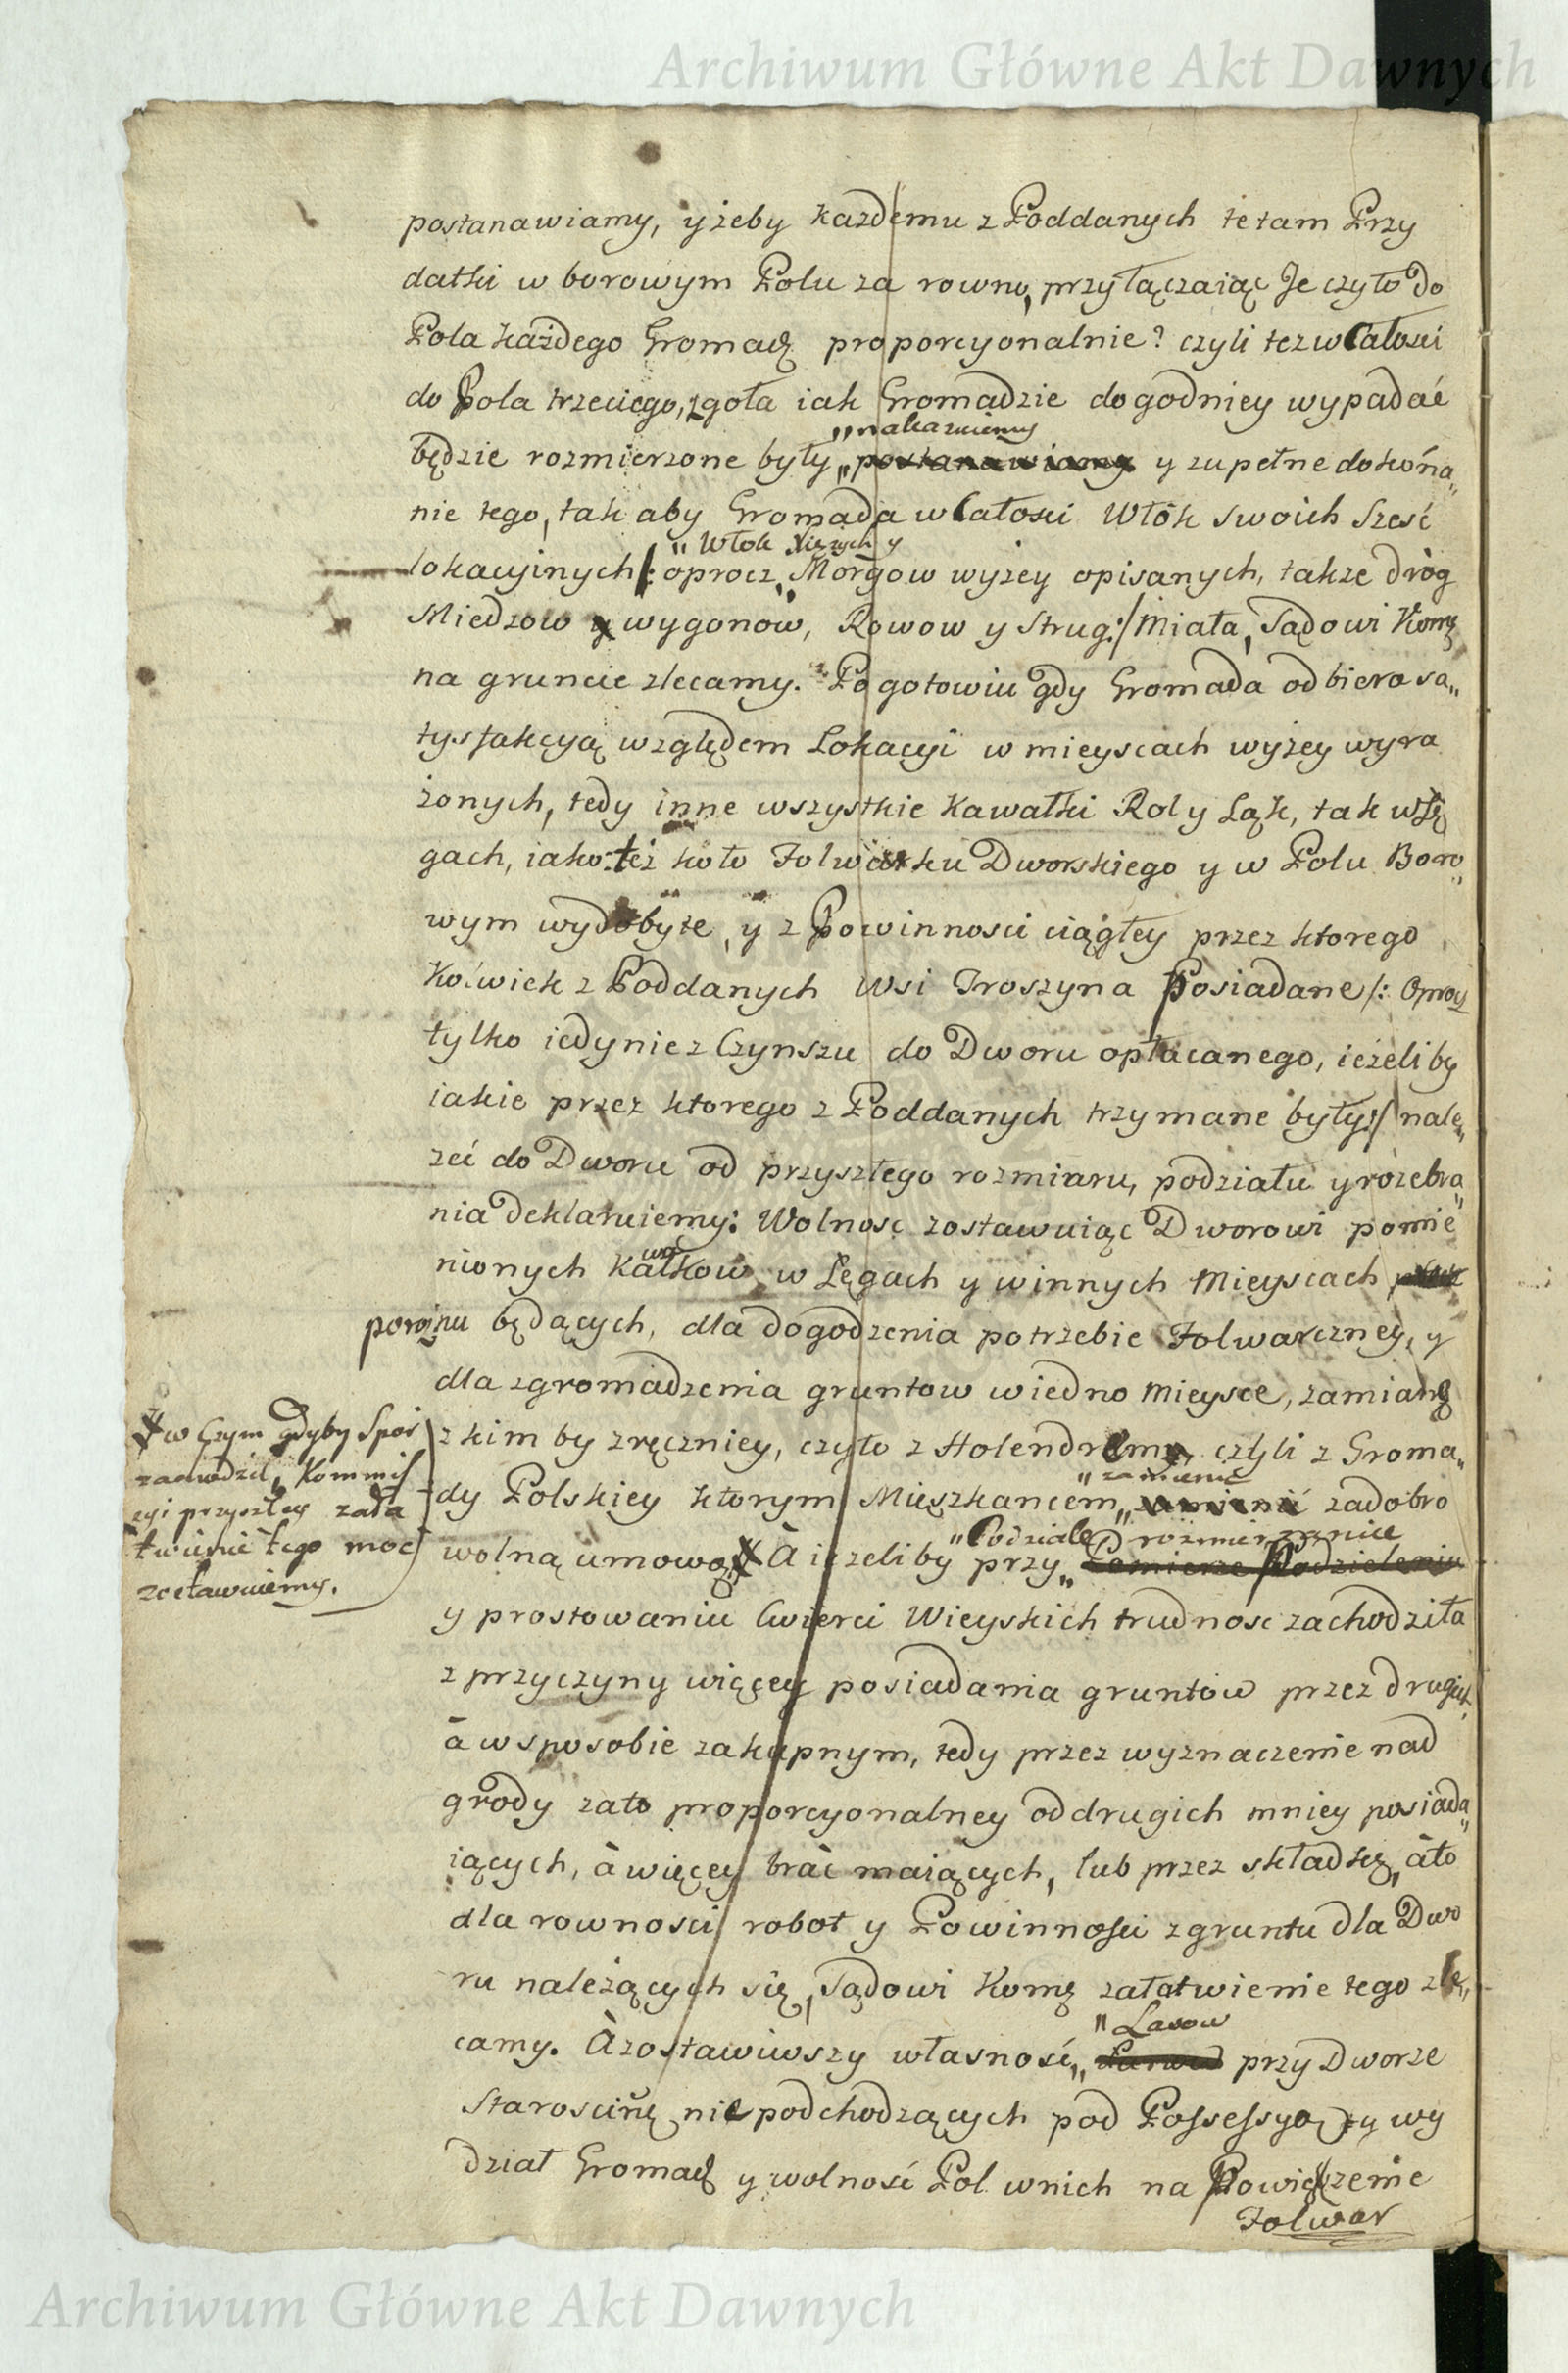 Archiwum Główne Akt Dawnych
postanawiamy, y żeby kazdemu z Poddanych te tam Przy
datki w borowym Polu za rowno, przyłączaiąc Je czyto do
Pola każdego Gromadz proporcyonalnie? czyli tez w Całosci
do Pola trzeciego, zgoła iak Gromadzie dogodniey wypadać
„nakazuiemy
będzie rozmierzone były „postanawiamy y zupełne dokóna„
nie tego, tak aby Gromada w Całosci Włók swoich Sześć
„Włok Xiężych y
lokacyinych /: oprocz „Morgow wyżey opisanych, takze dróg
Miedzow y wygonów, Rowow y Strug :/ Miała, Sądowi Komę
na gruncie zlecamy. Pogotowiu gdy Gromada odbiera sa„
tysfakcyą względem Lokacyi w mieyscach wyżey wyra
żonych, tedy inne wszystkie Kawałki Rol y Łąk, tak w Łę
gach, iako też koło Folwarku Dworskiego y w Polu Boro„
wym wydobyte, y z Powinnosci ciągłey przez ktorego
Kolwiek z Poddanych Wsi Troszyna Posiadane /: Oprocz
tylko iedynie z Czynszu do Dworu opłacanego, ieżeliby
iakie przez ktorego z Poddanych trzymane były :/ nale„
żeć do Dworu od przyszłego rozmiaru, podziału y rozebra„
nia deklaruiemy: Wolnosc zostawuiąc Dworowi pomie„
nionych Kawałkow w Łęgach y w innych Mieyscach
poroznu będących, dla dogodzenia potrzebie Folwarczney, y
dla zgromadzenia gruntow w iedno Mieysce, zamianę
z kim by zręczniey, czyto z Holendrem, czyli z Groma„
„zamienić
dy Polskiey ktorym Mięszkancem „zamienić za dobro
„Podziale y rozmierzaniu
wolną umową, X À ieżeliby przy „Pomierze Podzieleniu
y prostowaniu Cwierci Wieyskich trudnosc zachodziła
z przyczyny więcey posiadania gruntow przez drugich,
à w sposobie zakupnym, tedy przez wyznaczenie nad
grody za to proporcyonalney od drugich mniey posiada„
iących, à więcey brać maiących, lub przez składkę, àto
dla rownosci robot y Powinności z gruntu dla Dwo
ru należących się, Sądowi Komę załatwienie tego zle„
„Lasow
camy. À zostawiwszy własność, przy Dworze
Staroscinę nie podchodzących pod Possessyą y wy
dział Gromadz y wolność Pol w nich na Powiększenie
Folwar
X w Czym gdyby Spor
zachodził, Kommiss
yi przyszłey zała
twienie tego moc
zostawuiemy.
Archiwum Główne Akt Dawnych